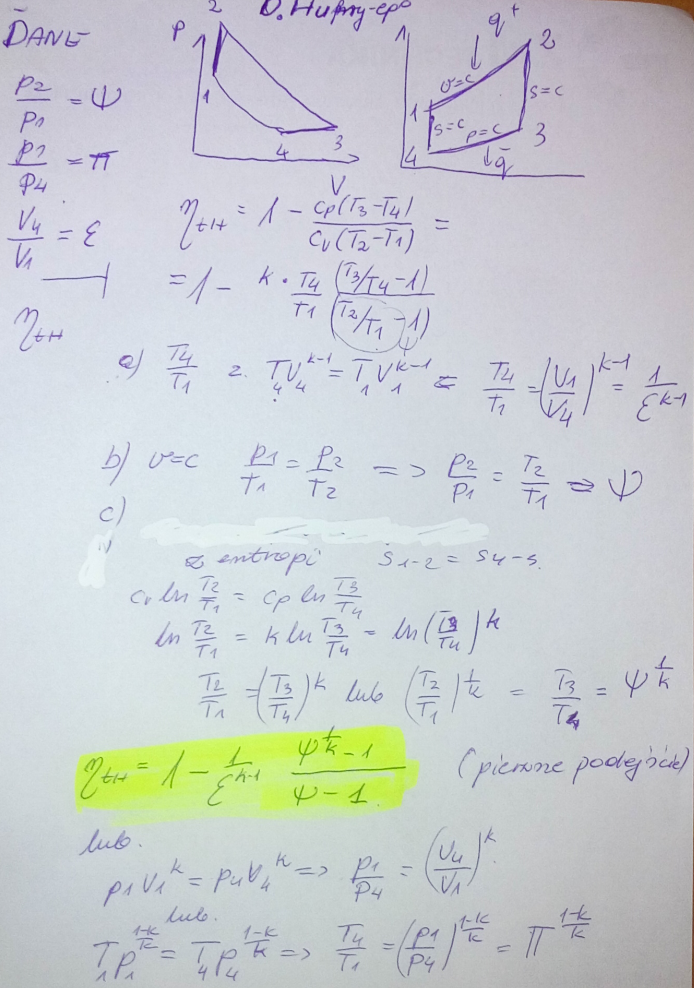 DANE
p2/p1 = Ψ
p1/p4 = π
V4/V1 = ε
ηtH
P 2 1 4 3 V
1 q+ 2 v=c 1 s=c s=c p=c 4 3 q-
ηtH = 1 - cp(T3-T4)/cv(T2-T1) =
= 1 - k · T4/T1 (T3/T4 -1)/(T2/T1 -1)
Ψ
a) T4/T1 z. T4V4^k-1 = T1V1^k-1 = T4/T1 = (V1/V4)^k-1 = 1/ε^k-1
b) v=c p1/T1 = p2/T2 => p2/p1 = T2/T1 => Ψ
c)
z entropi S1-2 = S4-3.
cv ln T2/T1 = cp ln T3/T4
ln T2/T1 = k ln T3/T4 = ln(T3/T4)^k
T2/T1 = (T3/T4)^k lub (T2/T1)^1/k = T3/T4 = Ψ^1/k
ηtH = 1 - 1/ε^k-1 Ψ^1/k -1/Ψ-1 (pierwsze podejście)
lub.
p1V1^k = p4V4^k => p1/p4 = (V4/V1)^k
lub.
T1p1^1-k/k = T4p4^1-k/k => T4/T1 = (p1/p4)^1-k/k = π^1-k/k